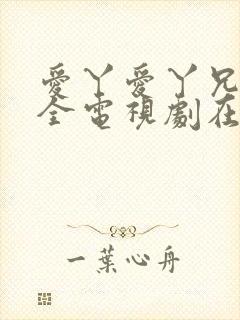 愛丫愛丫兄
全電視劇在
一葉心舟